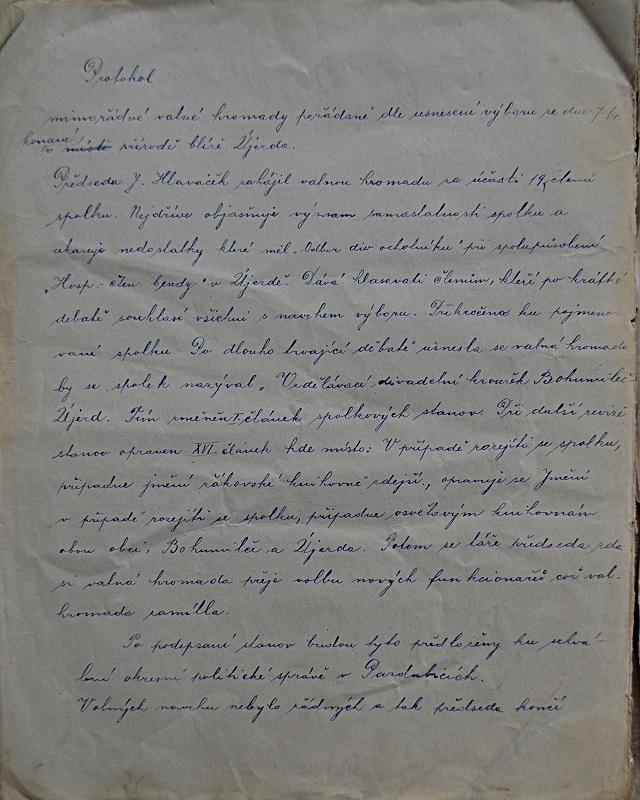 Protokol
mimořádné valné hromady pořádané dle usnesení výboru ze dne
konané
v místě přírodě blíže Újezda.
Předseda J. Hlaváček zahájil valnou hromadu za účasti 19 členů
spolku. Nejdříve objasňuje význam samostatnosti spolku a
ukazuje nedostatky které měl „Odbor div ochotníků" při spolupůsobení
„Hosp.- čten. besedy" v Újezdě. Dává hlasovati členům, kteří po krátké
debatě souhlasí všichni s navrhem výboru. Přikročeno ku pojmeno-
vání spolku. Po dlouho trvající debatě usnesla se valná hromada
by se spolek nazýval „Vzdělávací divadelní kroužek Bohumileč
Újezd. Tím změněn I. článek spolkových stanov. Při další revizi
stanov opraven XVI. článek kde místo: V případě rozejíti se spolku,
připadne jmění žákovské knihovně zdejší., opravuje se Jmění
v případě rozejíti se spolku, připadne osvětovým knihovnám
obou obcí, Bohumilče a Újezda. Potom se táže předseda zda
si valná hromada přeje volbu nových funkcionářů což val.
hromada zamítla.
Po podepsaní stanov budou tyto předloženy ku schvá-
lení okresní politické správě v Pardubicích.
Volných navrhu nebylo žádných a tak předseda končí